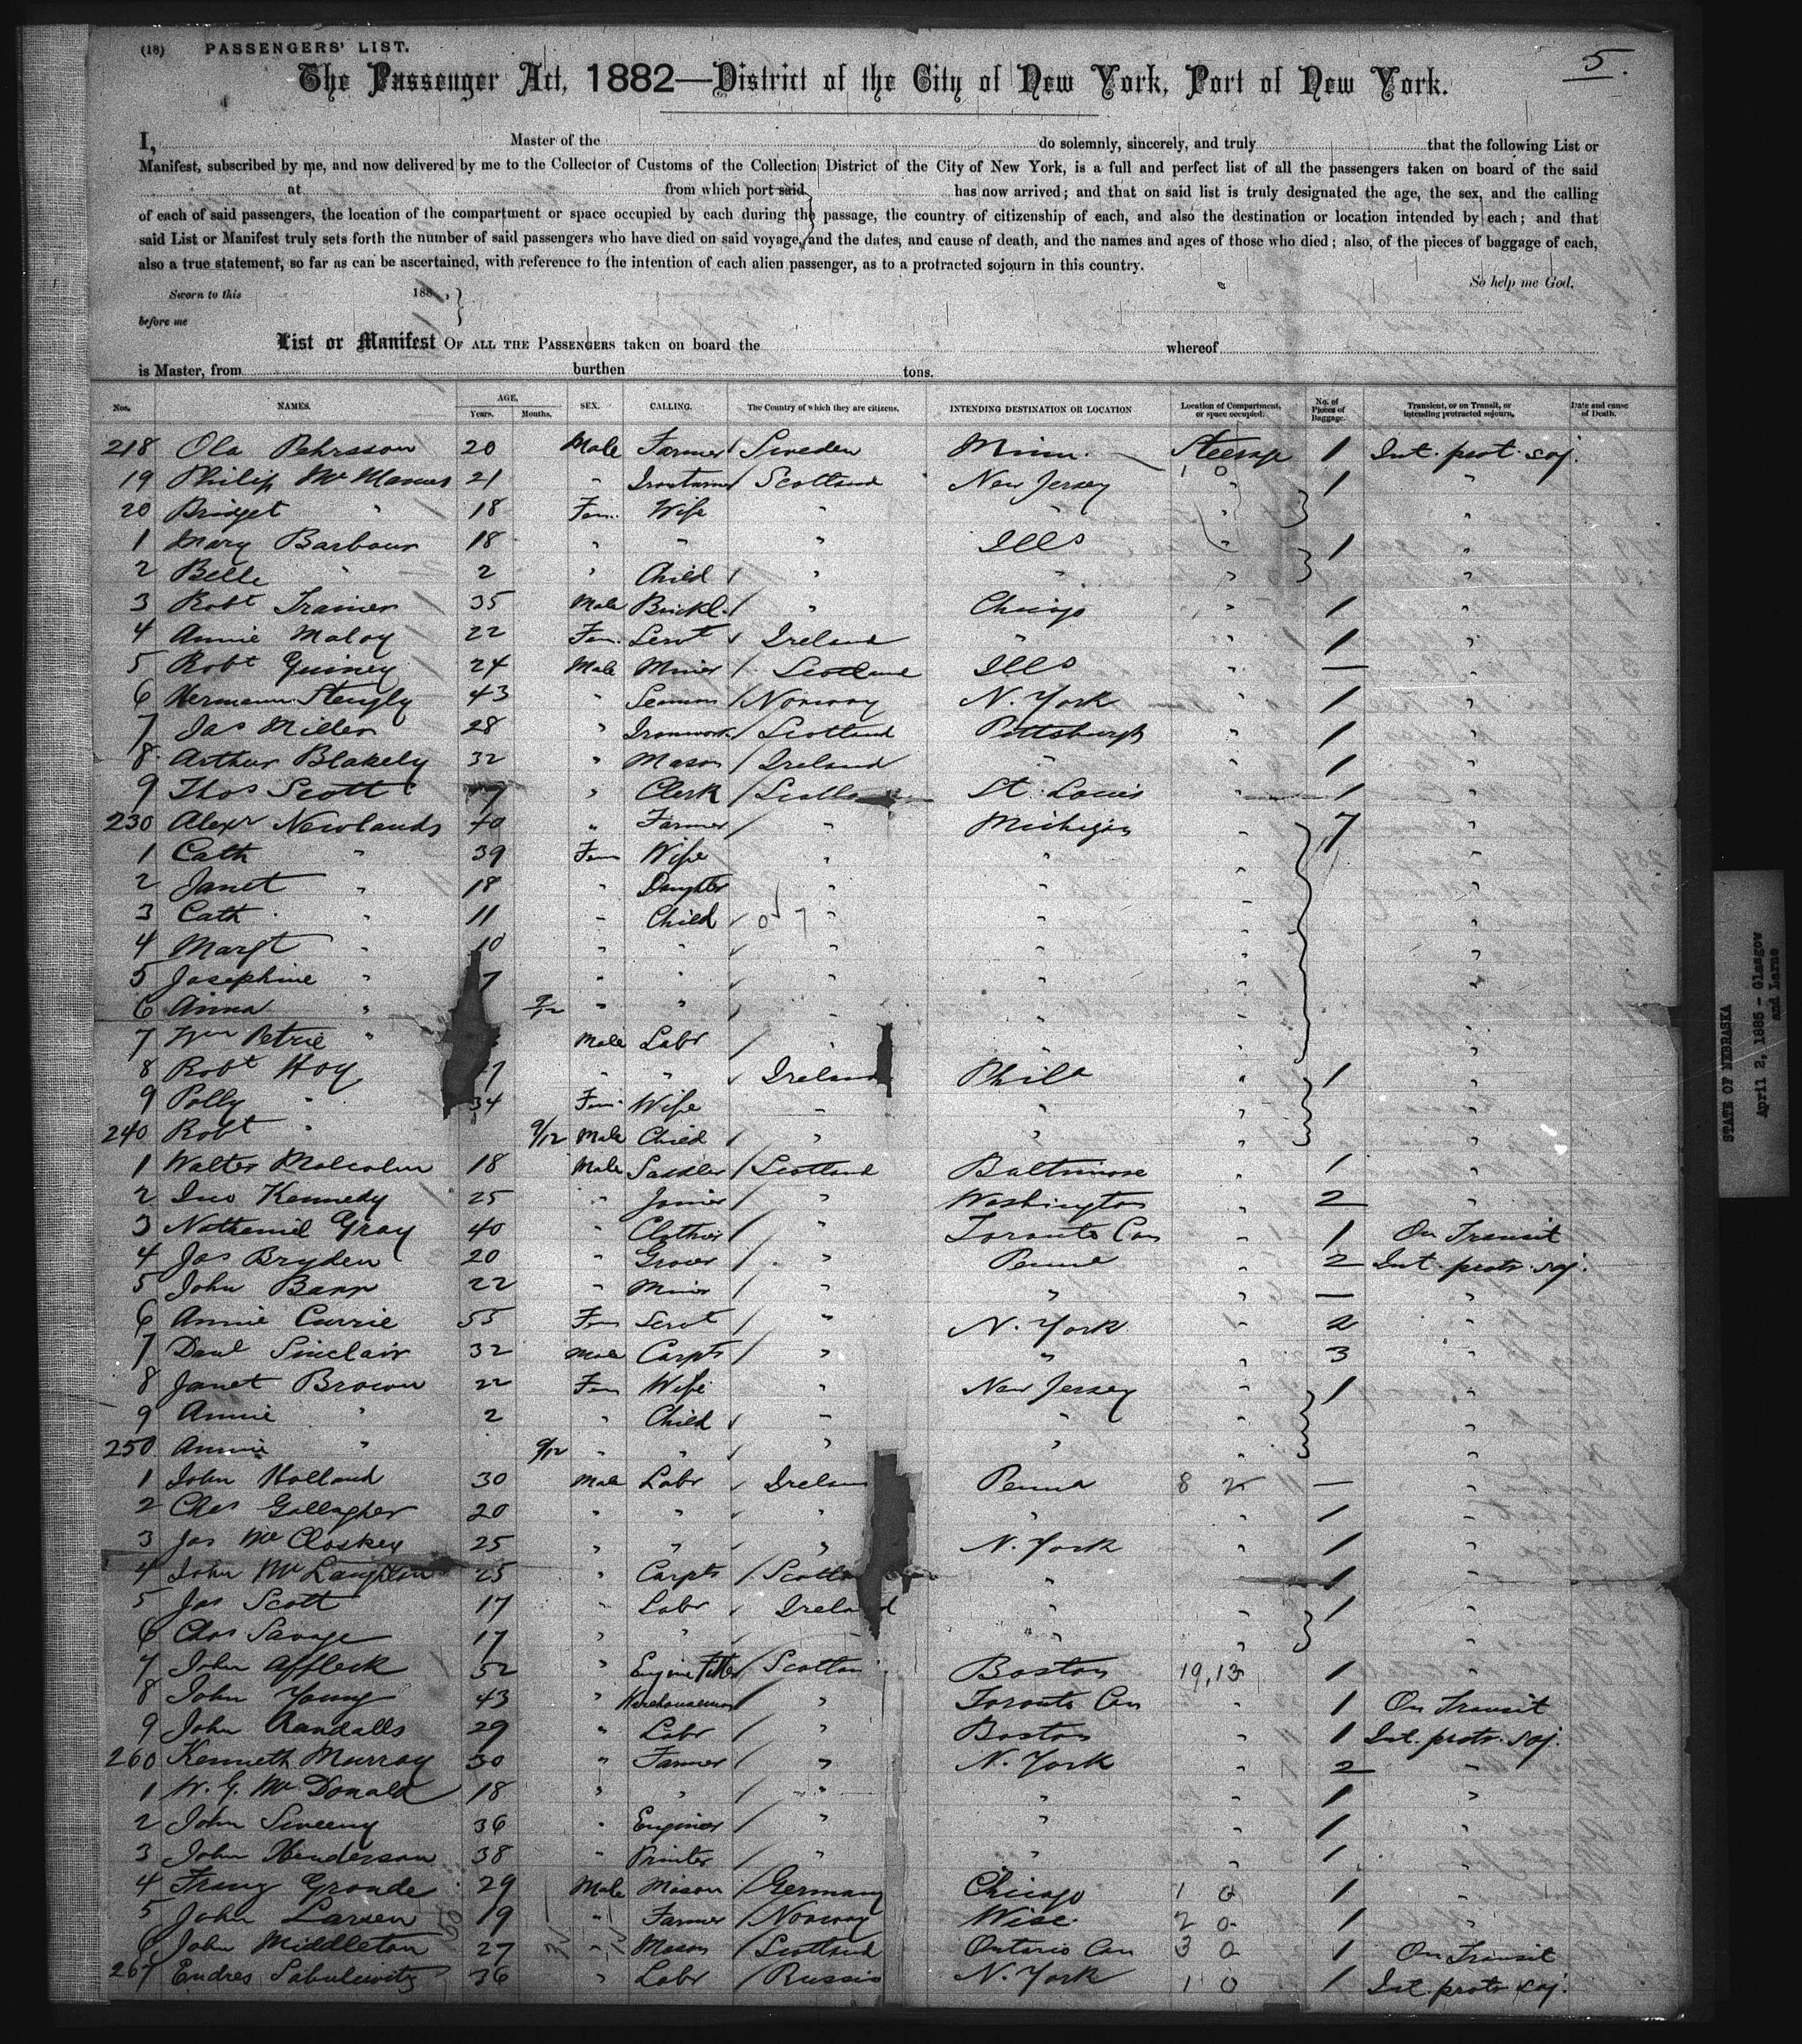 (18) PASSENGERS' LIST.
5.
The Passenger Act, 1882—District of the City of New York, Port of New York.
I, Master of the do solemnly, sincerely, and truly that the following List or
Manifest, subscribed by me, and now delivered by me to the Collector of Customs of the Collection District of the City of New York, is a full and perfect list of all the passengers taken on board of the said
at from which port said has now arrived; and that on said list is truly designated the age, the sex, and the calling
of each of said passengers, the location of the compartment or space occupied by each during the passage, the country of citizenship of each, and also the destination or location intended by each; and that
said List or Manifest truly sets forth the number of said passengers who have died on said voyage, and the dates, and cause of death, and the names and ages of those who died; also, of the pieces of baggage of each,
also a true statement, so far as can be ascertained, with reference to the intention of each alien passenger, as to a protracted sojourn in this country.
So help me God.
Sworn to this 188 ,
before me
List or Manifest OF ALL THE PASSENGERS taken on board the whereof
is Master, from burthen tons.
Nos. NAMES. AGE. Years. Months. SEX. CALLING. The Country of which they are citizens. INTENDING DESTINATION OR LOCATION Location of Compartment, or space occupied. No. of Pieces of Baggage. Transient, or on Transit, or intending protracted sojourn. Date and cause of Death.
218 Ola Pehrsson 20 Male Farmer / Sweden Minn. Steerage 1 Int. prot. soj.
19 Philip McManus 21 " / Scotland New Jersey 1 0 " 1 "
20 Bridget " 18 Fem. Wife " " "
1 Mary Barbour 18 " " " Ills " 1 "
2 Belle " 2 " Child / " " " "
3 Robt Trainer 35 Male Brickl. / " Chicago " 1 "
4 Annie Maloy 22 Fem. Servt / Ireland " " 1 "
5 Robt Guiney 24 Male Miner / Scotland Ills " — "
6 Hermann 43 " Seaman / Norway N. York " 1 "
7 Jas Miller 28 " Ironwork / Scotland Pittsburgh " 1 "
8 Arthur Blakely 32 " Mason / Ireland " " 1 "
9 Thos Scott " Clerk / St. Louis " 1 "
230 Alexr Newlands 40 " Farmer / " Michigan " 7 "
1 Cath " 39 Fem Wife " " " "
2 Janet " 18 " Daughter " " " "
3 Cath " 11 " Child / " " " "
4 Margt " 10 " " / " " " "
5 Josephine " 7 " " / " " " "
6 Anna " " " / " " " "
7 Wm Petrie " Male Labr / " " " "
8 Robt Hoy " " / Ireland Phila " 1 "
9 Polly " 34 Fem Wife " " " "
240 Robt " 9/12 Male Child / " " " "
1 Walter Malcolm 18 Male Saddler / Scotland Baltimore " 1 "
2 Jno Kennedy 25 " Joiner / " Washington " 2 "
3 Nathaniel Gray 40 " Clothier / " Toronto Can " 1 On Transit
4 Jas Bryden 20 " Grocer / " Penna " 2 Int. protr. soj.
5 John Barr 22 " Miner / " " " — "
6 Annie Currie 55 Fem Servt / " N. York " 2 "
7 Danl Sinclair 32 Male Carptr / " " " 3 "
8 Janet Brown 22 Fem Wife " New Jersey " 1 "
9 Annie " 2 " Child / " " " "
250 Annie " 9/12 " " / " " " "
1 John Holland 30 Male Labr / Ireland Penna 8 — "
2 Chas Gallagher 20 " " " " " 1 "
3 Jas McCloskey 25 " " / " N. York " 1 "
4 John McLaughlin 25 " Carptr / " 1 "
5 Jas Scott 17 " Labr / Ireland " " 1 "
6 Chas Savage 17 " " / " " "
7 John Affleck 52 " Engine Fitter / Boston 19,13 1 "
8 John Young 43 " Warehouseman / " Toronto Can " 1 On Transit
9 John Randalls 29 " Labr / " Boston " 1 Int. protr. soj.
260 Kenneth Murray 30 " Farmer / " N. York " 2 "
1 W. G. McDonald 18 " " / " " " 1 "
2 John Sweeny 36 " Engineer / " " " 1 "
3 John Henderson 38 " Printer / " " " 1 "
4 Franz Grande 29 Male Mason / Germany Chicago 1 0 1 "
5 John Larsen 19 " Farmer / Norway Wisc. 2 0 1 "
6 John Middleton 27 " Mason / Scotland Ontario Can 3 0 1 On Transit
267 Endres 36 " Labr / Russia N. York 1 0 1 Int. protr. soj.
STATE OF NEBRASKA
April 2, 1885 - Glasgow
and Larne